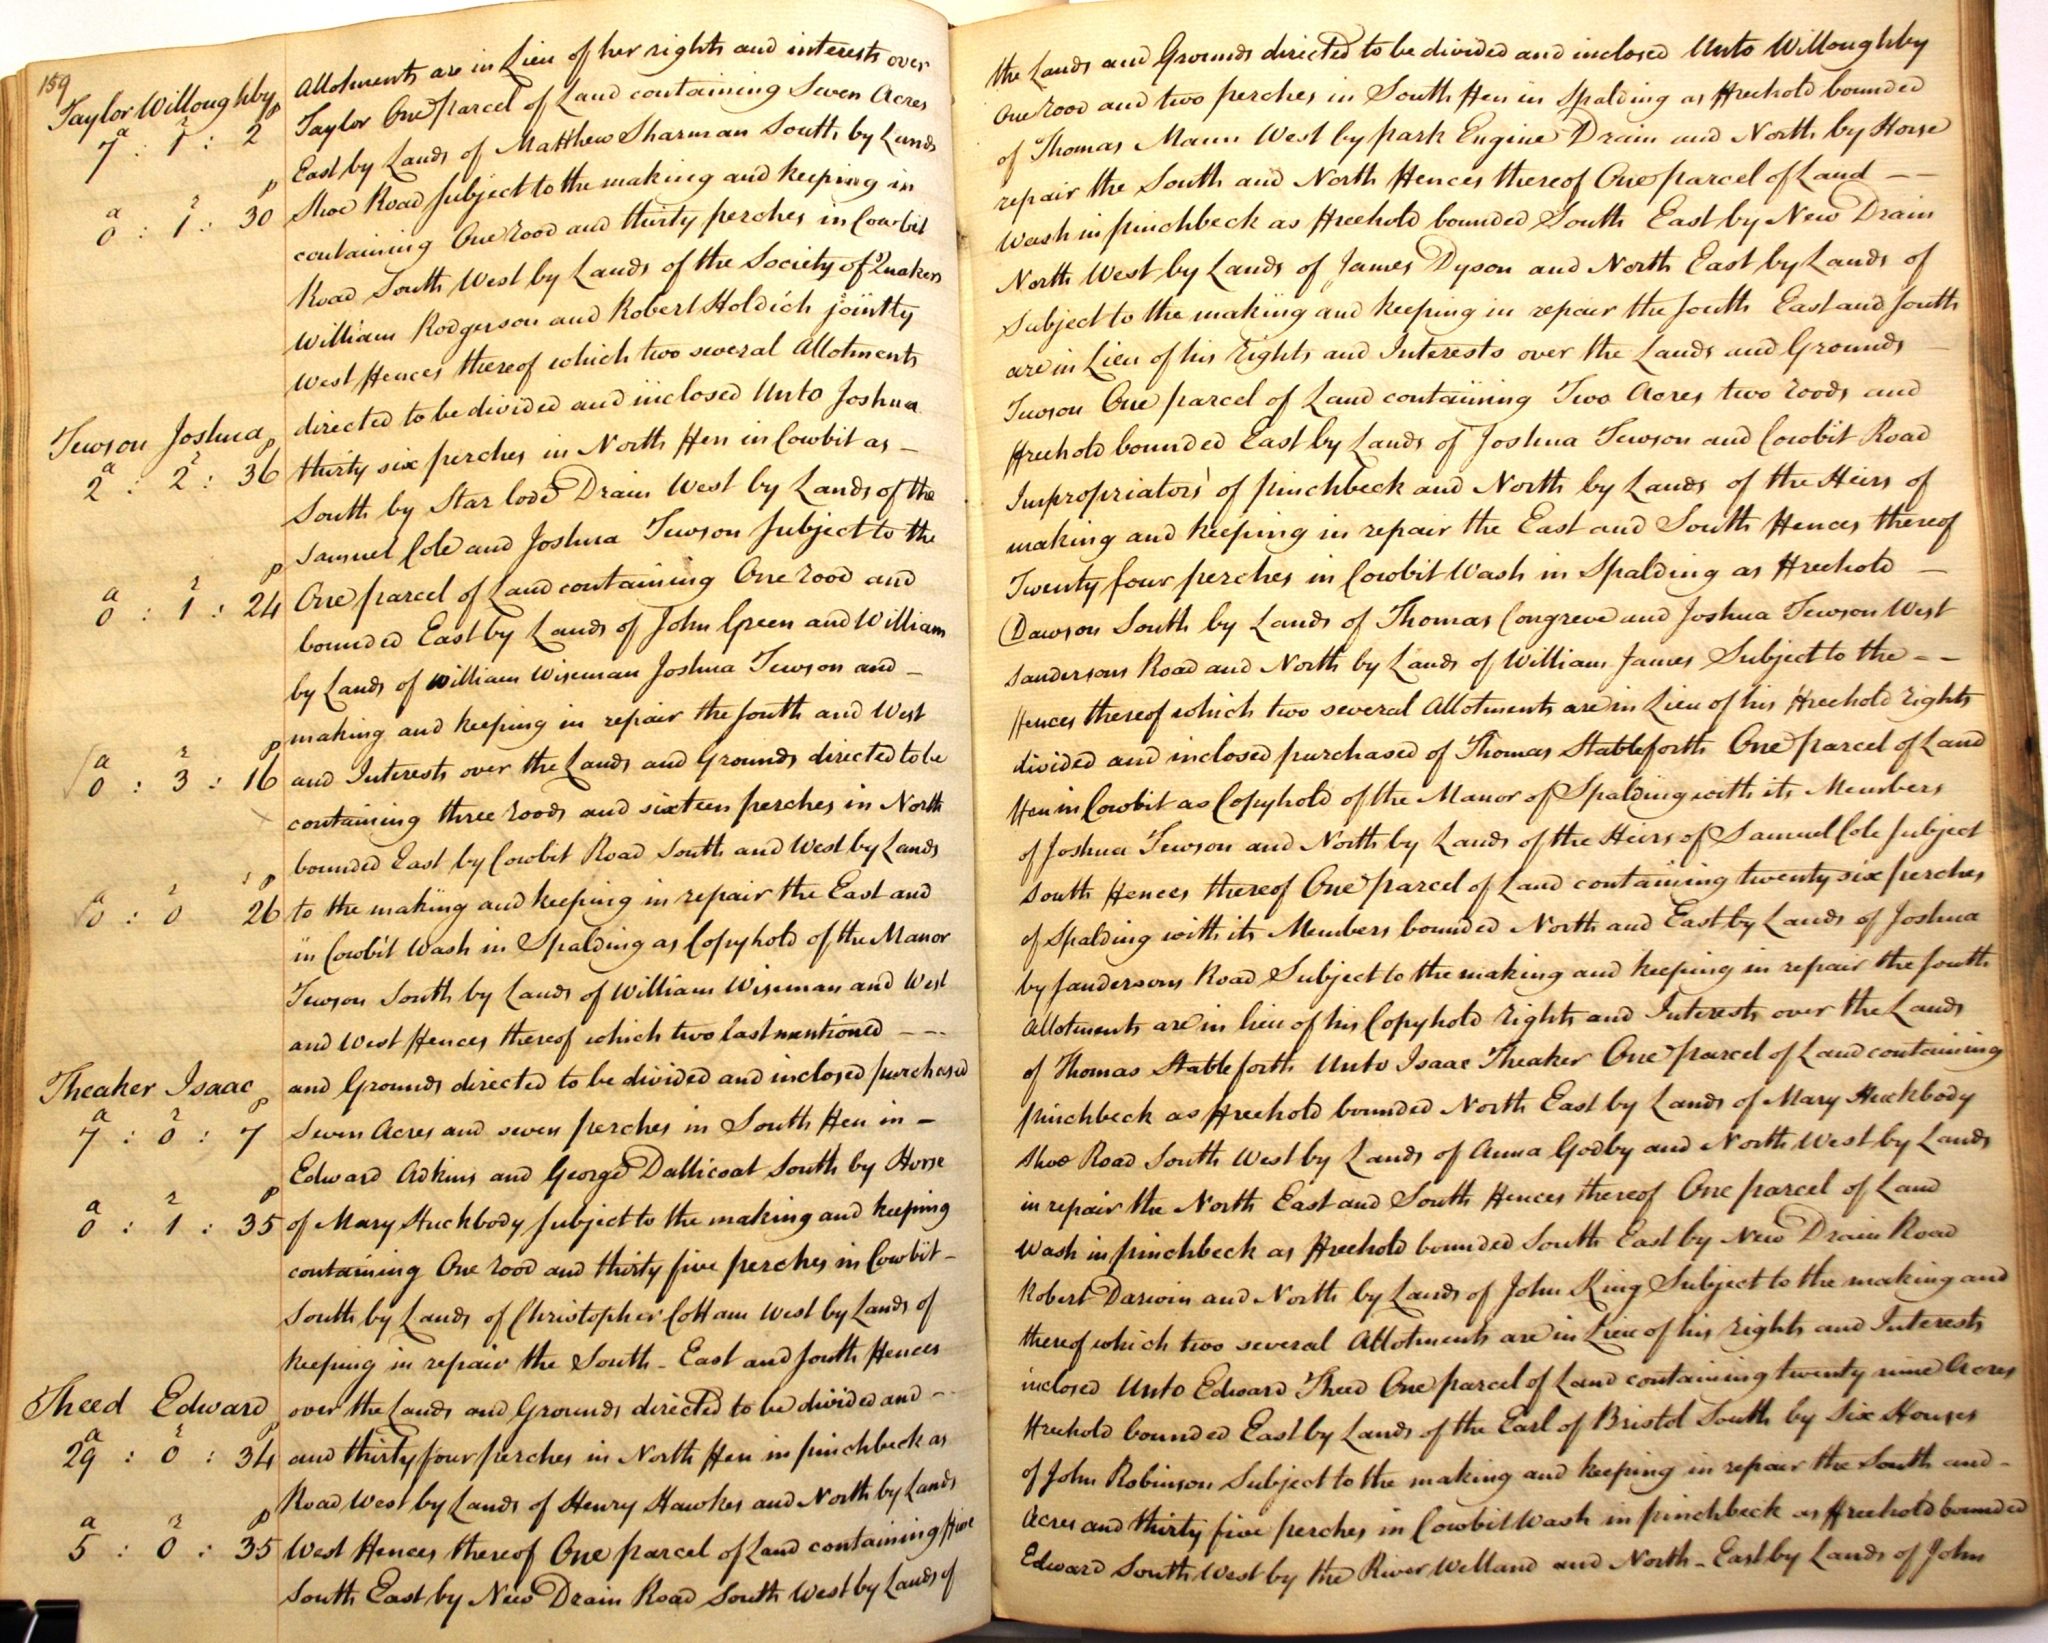 159
Allotments are in Lieu of her rights and interests over
the Lands and Grounds directed to be divided and inclosed Unto Willoughby
Taylor Willoughby
a r p
7 : 1 : 2
Taylor One parcel of Land containing Seven Acres
One rood and two perches in South Fen in Spalding as Freehold bounded
East by Lands of Matthew Sharman South by Lands
of Thomas Mann West by park Engine Drain and North by Horse
Shoe Road Subject to the making and keeping in
repair the South and North Fences thereof One parcel of Land – –
a r p
0 : 1 : 30
containing One rood and thirty perches in Cowbit
Wash in pinchbeck as Freehold bounded South East by New Drain
Road South West by Lands of the Society of Quakers
North West by Lands of James Dyson and North East by Lands of
William Rodgerson and Robert Holdich jointly
Subject to the making and keeping in repair the South East and South
West Fences thereof which two several Allotments
are in Lieu of his Rights and Interests over the Lands and Grounds –
directed to be divided and inclosed Unto Joshua
Tewson One parcel of Land containing Two Acres two roods and
Tewson Joshua
a r p
2 : 2 : 36
thirty six perches in North Fen in Cowbit as –
Freehold bounded East by Lands of Joshua Tewson and Cowbit Road
South by Star lode Drain West by Lands of the
Impropriators of pinchbeck and North by Lands of the Heirs of
Samuel Cole and Joshua Tewson Subject to the
making and keeping in repair the East and South Fences thereof
a r p
0 : 1 : 24
One parcel of Land containing One rood and
Twenty four perches in Cowbit Wash in Spalding as Freehold –
bounded East by Lands of John Green and William
Dawson South by Lands of Thomas Congreve and Joshua Tewson West
by Lands of William Wiseman Joshua Tewson and –
Sandersons Road and North by Lands of William James Subject to the – –
making and keeping in repair the South and West
Fences thereof which two several Allotments are in Lieu of his Freehold Rights
a r p
0 : 3 : 16
and Interests over the Lands and Grounds directed to be
divided and inclosed purchased of Thomas Stableforth One parcel of Land
containing three roods and sixteen perches in North
Fen in Cowbit as Copyhold of the Manor of Spalding with its Members
bounded East by Cowbit Road South and West by Lands
of Joshua Tewson and North by Lands of the Heirs of Samuel Cole Subject
a r p
0 : 0 26
to the making and keeping in repair the East and
South Fences thereof One parcel of Land containing twenty six perches
in Cowbit Wash in Spalding as Copyhold of the Manor
of Spalding with its Members bounded North and East by Lands of Joshua
Tewson South by Lands of William Wiseman and West
by Sandersons Road Subject to the making and keeping in repair the South
and West Fences thereof which two last mentioned – – –
Allotments are in lieu of his Copyhold Rights and Interests over the Lands
and Grounds directed to be divided and inclosed purchased
of Thomas Stableforth Unto Isaac Theaker One parcel of Land containing
Theaker Isaac
a r p
7 : 0 : 7
Seven Acres and seven perches in South Fen in –
pinchbeck as Freehold bounded North East by Lands of Mary Huckbody
Edward Adkins and George Dallicoat South by Horse
Shoe Road South West by Lands of Anna Godby and North West by Lands
a r p
0 : 1 : 35
of Mary Huckbody Subject to the making and keeping
in repair the North East and South Fences thereof One parcel of Land
containing One rood and thirty five perches in Cowbit –
Wash in pinchbeck as Freehold bounded South East by New Drain Road
South by Lands of Christopher Cottam West by Lands of
Robert Darwin and North by Lands of John King Subject to the making and
keeping in repair the South – East and South Fences
thereof which two several Allotments are in Lieu of his rights and Interests
over the Lands and Grounds directed to be divided and – –
inclosed Unto Edward Theed One parcel of Land containing twenty nine Acres
Theed Edward
a r p
29 : 0 : 34
and thirty four perches in North Fen in pinchbeck as
Freehold bounded East by Lands of the Earl of Bristol South by Six Houses
Road West by Lands of Henry Hawkes and North by Lands
of John Robinson Subject to the making and keeping in repair the South and –
a r p
5 : 0 : 35
West Fences thereof One parcel of Land containing Five
Acres and thirty five perches in Cowbit Wash in pinchbeck as Freehold bounded
South East by New Drain Road South West by Lands of
Edward South West by the River Welland and North – East by Lands of John